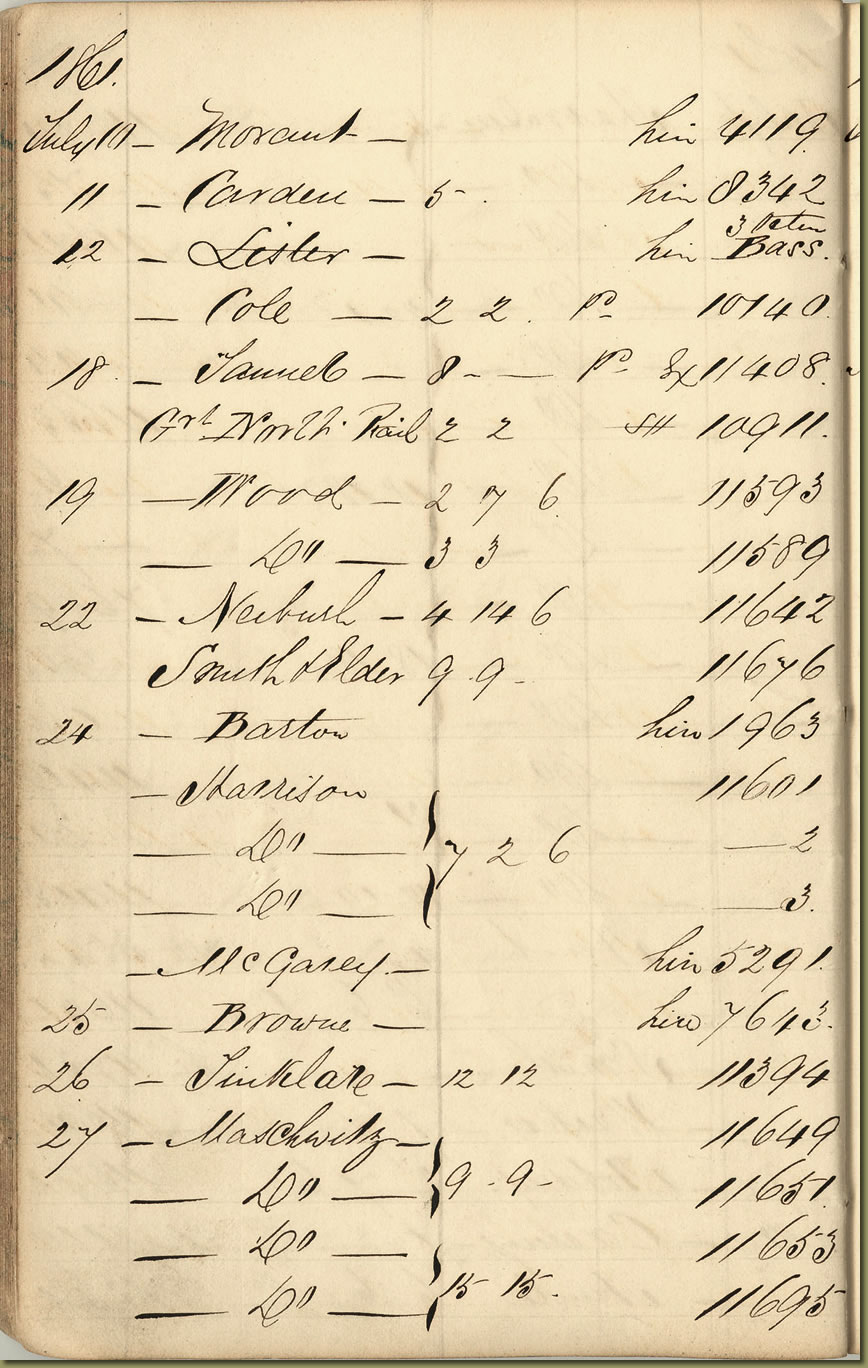 1861.
July 10 — Morant — hire 4119.
11 — Carden — 5 - . hire 8342
3 Octn
12 — Lister — hire Bass.
— Cole — 2 2 . Po 10140.
18 — Samuel — 8 - — Po Ex 11408.
Grt North. Rail 2 2 SH 10911.
19 — Wood — 2 7 6. 11593
— Do — 3 3 11589
22 — Neibush — 4 14 6 11642
Smith & Elder 9 . 9 - 11676
24 — Barton hire 1963
— Harrison 11601
— Do — 7 2 6 — 2
— Do — — 3.
— McGarey. — hire 5291.
25 — Browne — hire 7643.
26 — Tinklare — 12 12 11394
27 — Maschwitz — 11649
— Do — 9 - 9 - 11651.
— Do — 11653
— Do — 15 15. 11695